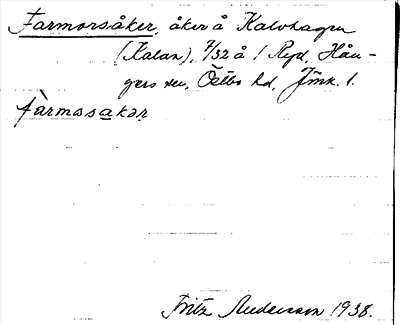 Farmorsåker, åker å Kalvhagen
(Kalan), 7/32 å 1 Ryd, Hån-
gers sn, Östbo hd, Jmk. 1.
fàrmosakər
Fritz Anderson 1938.